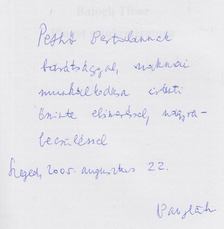 Pethő Bertalannak
barátsággal, szakmai
munkássága iránti
őszinte elismeréssel, nagyra-
becsüléssel
Szeged, 2005. augusztus 22.